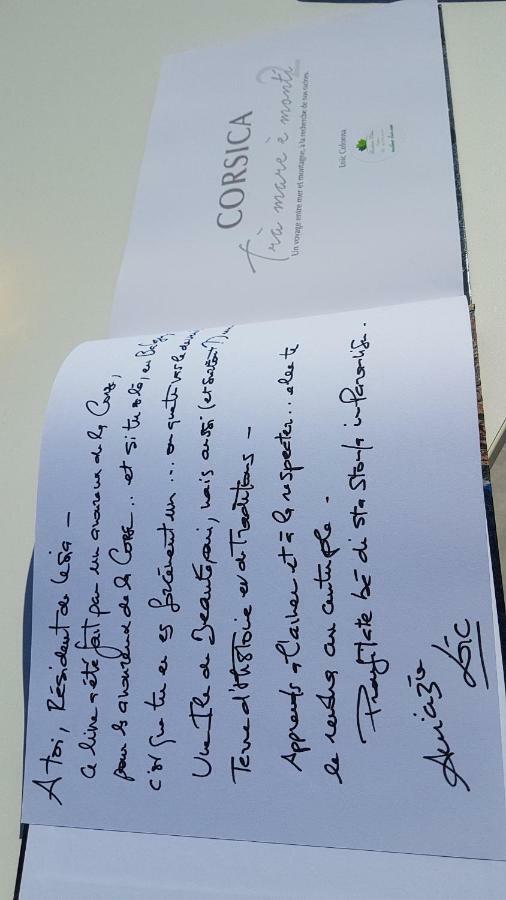 A toi, Résident de
Ce livre a été fait par un amoureux de la Corse,
pour les amoureux de la Corse... et si tu es là, en
c'est que tu en es forcément un... en quête
Une Ile de Beauté, oui, mais aussi (et surtout !) une
Terre d'Histoire et de Traditions -
Apprends à l'aimer et à la respecter... elle te
le rendra au centuple -
bè di sta
Amicizia
Loïc
CORSICA
Trà mare è monti
Un voyage entre mer et montagne, à la recherche de nos racines.
Loïc Colonna